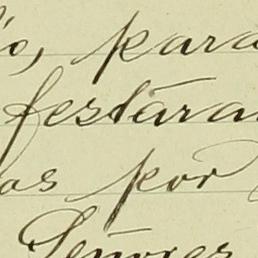 o, para
festára
os por
Senores